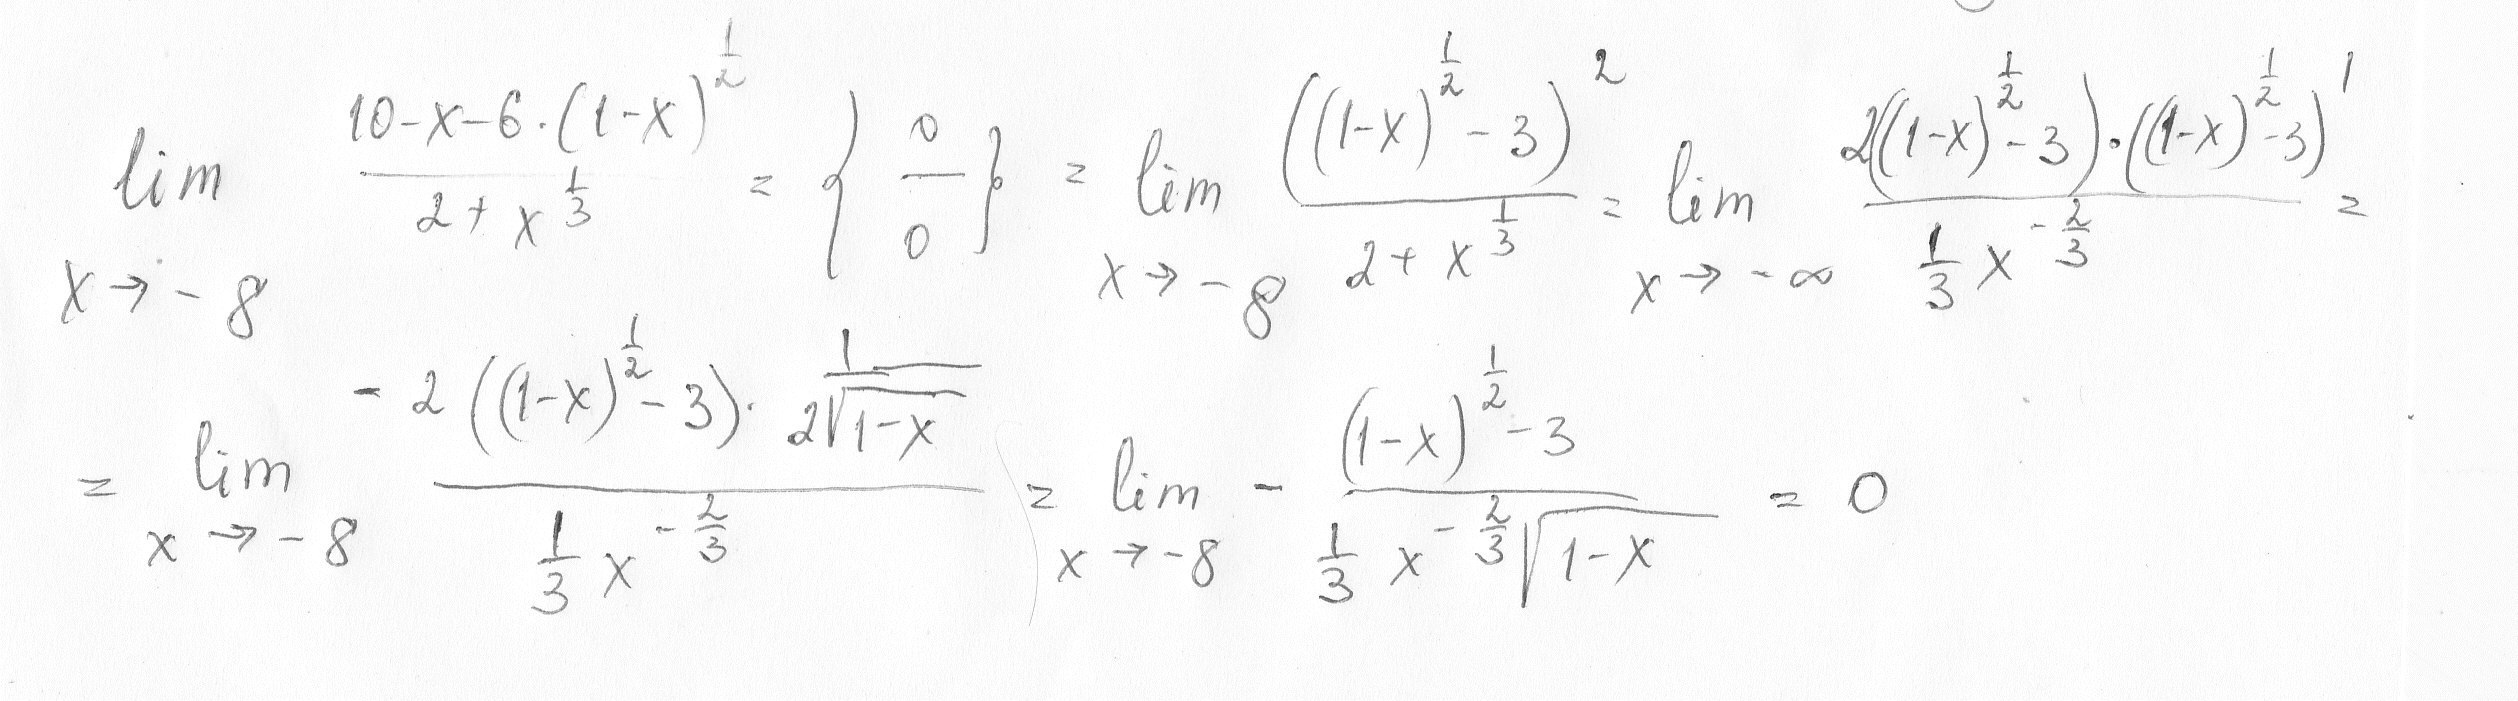 lim x→-8 (10-x-6·(1-x)^(1/2))/(2+x^(1/3)) = {0/0} = lim x→-8 ((1-x)^(1/2)-3)^2/(2+x^(1/3)) = lim x→-∞ (2((1-x)^(1/2)-3)·((1-x)^(1/2)-3)')/(1/3 x^(-2/3)) =
= lim x→-8 (-2((1-x)^(1/2)-3)·1/(2√(1-x)))/(1/3 x^(-2/3)) = lim x→-8 -((1-x)^(1/2)-3)/(1/3 x^(-2/3)√(1-x)) = 0